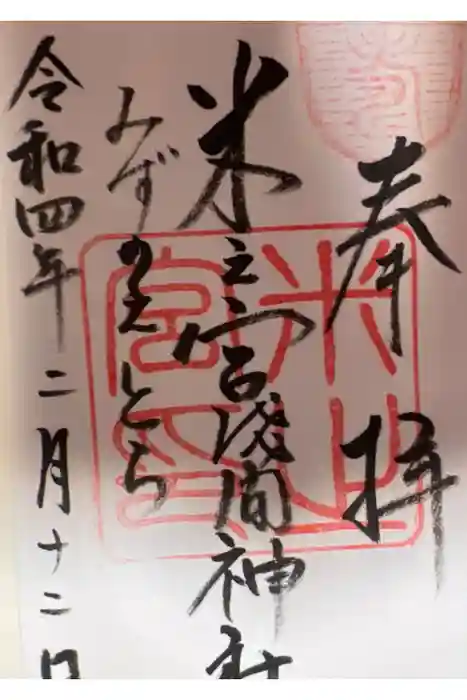 奉拝
米之宮浅間神社
みずのえとら
令和四年二月十二日
米之宮印